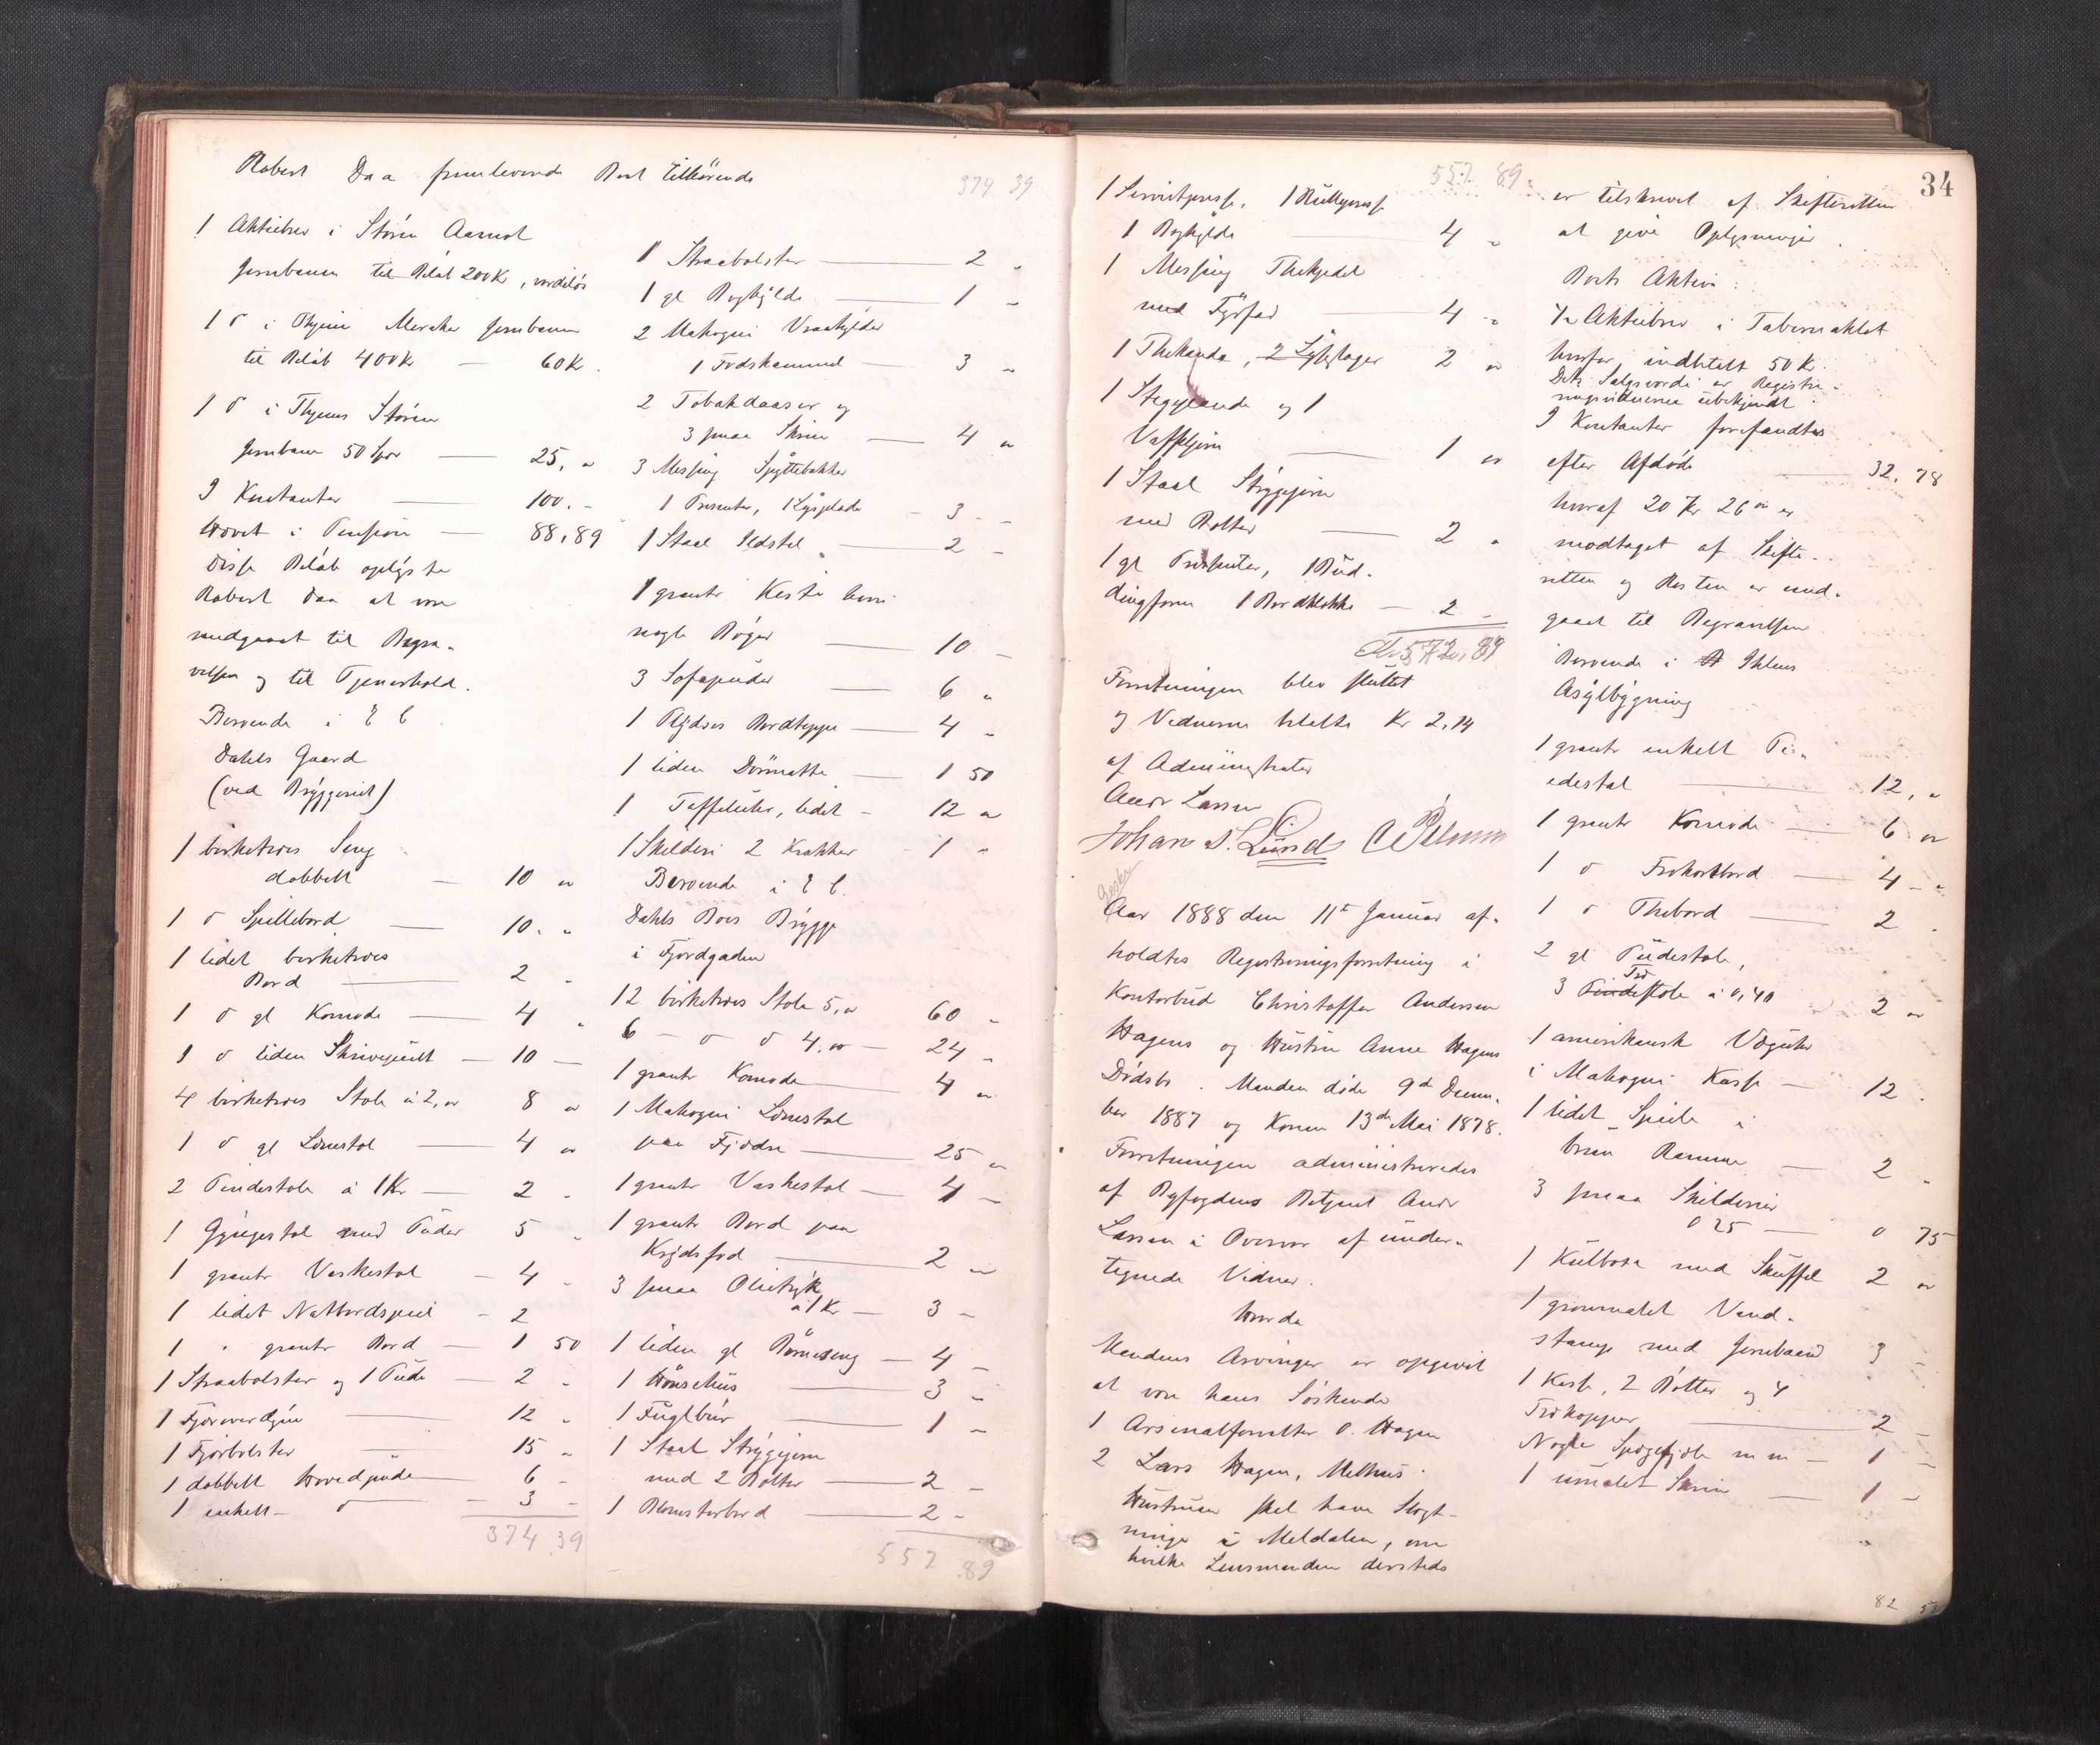 Robert Daa fremlevende Bost tilhörende
1 Aktiebrev i Stören Aamot
Jernbanen til Beløb 200 Kr, værdiløs
1 d i Meraker Jernbanen
til Beløb 400 Kr — 60 Kr.
1 d i Stören
Jernbane 50 Spd — 25, "
I Kontanter — 100. -
Hævet i Pension — 88,89
Disse Beløb oplyste
Robert Daa at være
medgaaet til Begra-
velsen og til Tjenerhold.
Beroende i E C
Dahls Gaard
(ved Bryggeriet)
1 birketræes Seng
dobbelt — 10 "
1 d Spillebord — 10. "
1 lidet birketræes
Bord — 2 "
1 d gl Komode — 4 "
1 d liden Skrivepult — 10 —
4 birketræes Stole á 2, " 8 "
1 d gl Lænestol — 4 "
2 Pindestole á 1 Kr — 2 -
1 Gyngestol med Puder 5 "
1 grantr Vaskestol — 4 -
1 lidet Natbordspeil - 2
1 " grantr Bord — 1 50
1 Straabolster og 1 Pude — 2 -
1 Fjæroverdyne — 12 "
1 Fjærbolster — 15 "
1 dobbelt Hovedpude — 6 -
1 enkelt - d — 3 -
374,39
374 39
1 Straabolster — 2 "
1 gl Boghylde — 1 "
2 Mahogni Vraahylder
1 Fodskammel — 3 "
2 Tobakdaaser og
3 smaa Skrin — 4 "
3 Messing Spyttebakker
1 Presenter, 1 Lyseplade - 3 - -
1 Staal Ildstel — 2 -
1 grantr Kiste
nogle Bøger — 10 -
3 Sofapuder — 6 "
1 Bordteppe — 4 "
1 liden Dörmatte — 1 50
1 Taffeluhr, lidet - 12 "
1 Skilderi 2 Krakker - 1 "
Beroende i E C.
Dahls Boes Brygge
i Fjordgaden
12 birketræes Stole 5, " 60 -
6 - d d 4. " — 24 -
1 grantr Komode — 4 "
1 Mahogni Lænestol
paa Fjedre — 25 "
1 grantr Vaskestol — 4 -
1 grantr Bord paa
Krydsfod — 2 "
3 smaa Olietryk
á 1 Kr — 3 -
1 liden gl Barneseng — 4 -
1 Hönsehus — 3 -
1 Fuglbur — 1 -
1 Staal Strygejern
med 2 Bolter — 2 -
1 Blomsterbord — 2 -
557.89
34
557. 89
1 Servietpresse, 1 Rullepresse
1 Boghylde — 4 "
1 Messing Thekjedel
med Fyrfad — 4 "
1 Thekande, 2 2 "
1 Stegepande og 1
Vaffeljern — 1 "
1 Staal Strygejern
med Bolter — 2 "
1 gl Presenter, 1 Bud-
dingform 1 Bordklokke — 2 -
Kr 572,89
Forretningen blev sluttet
og Vidnerne betalte Kr 2,14
af Administrator
Andr Larsen
Johan S. Lund
Aar 1888 den 11te Januar af-
holdtes Registreringsforretning i
Kontorbud Christoffer Andersen
Hagens og Hustru Anne Hagens
Dødsbo. Manden døde 9de Decem-
ber 1887 og Konen 13de Mai 1878.
Forretningen administreredes
af Byfogdens Betjent Andr
Larsen i Overvær af under-
tegnede Vidner.
Hvorda
Mandens Arvinger er opgivet
at være hans Søskende
1 Arsenalforvalter O. Hagen
2 Lars Hagen, Melhus.
Hustruen skal have Slægt-
ninge i Meldalen, om
hvilke Lensmanden dersteds
er tilskrevet af Skifteretten
at give Oplysninger.
Boets Aktiva:
1/2 Aktiebrev i Tabernaklet
hvorfor indbetalt 50 Kr.
Dets Salgsværdi er Registre-
ringsvidnerne ubekjendt.
I Kontanter forefandtes
efter Afdøde — 32,78
hvoraf 20 Kr 26 ør er
modtaget af Skifte-
retten og Resten er med-
gaaet til Begravelsen
Beroende i Ihlens
Asylbygning
1 grantr enkelt Pi-
edestal — 12, "
1 grantr Komode — 6 "
1 d Frokostbord — 4 - "
1 d Thebord — 2 .
2 gl Pindestole,
3 Træstole á 0,40 2 "
1 amerikansk Vægur
i Mahogni Kasse — 12 .
1 lidet Speile i
brun Ramme — 2 -
3 smaa Skilderier
0 25 — 0 75
1 Kulboxe med Skuffel 2 "
1 grønmalet Vand-
stampe med Jernbaand 3 -
1 Kasse, 2 Bøtter og 4
Trækopper — 2 -
Nogle m m — 1 -
1 umalet Skrin — 1 -
82 5